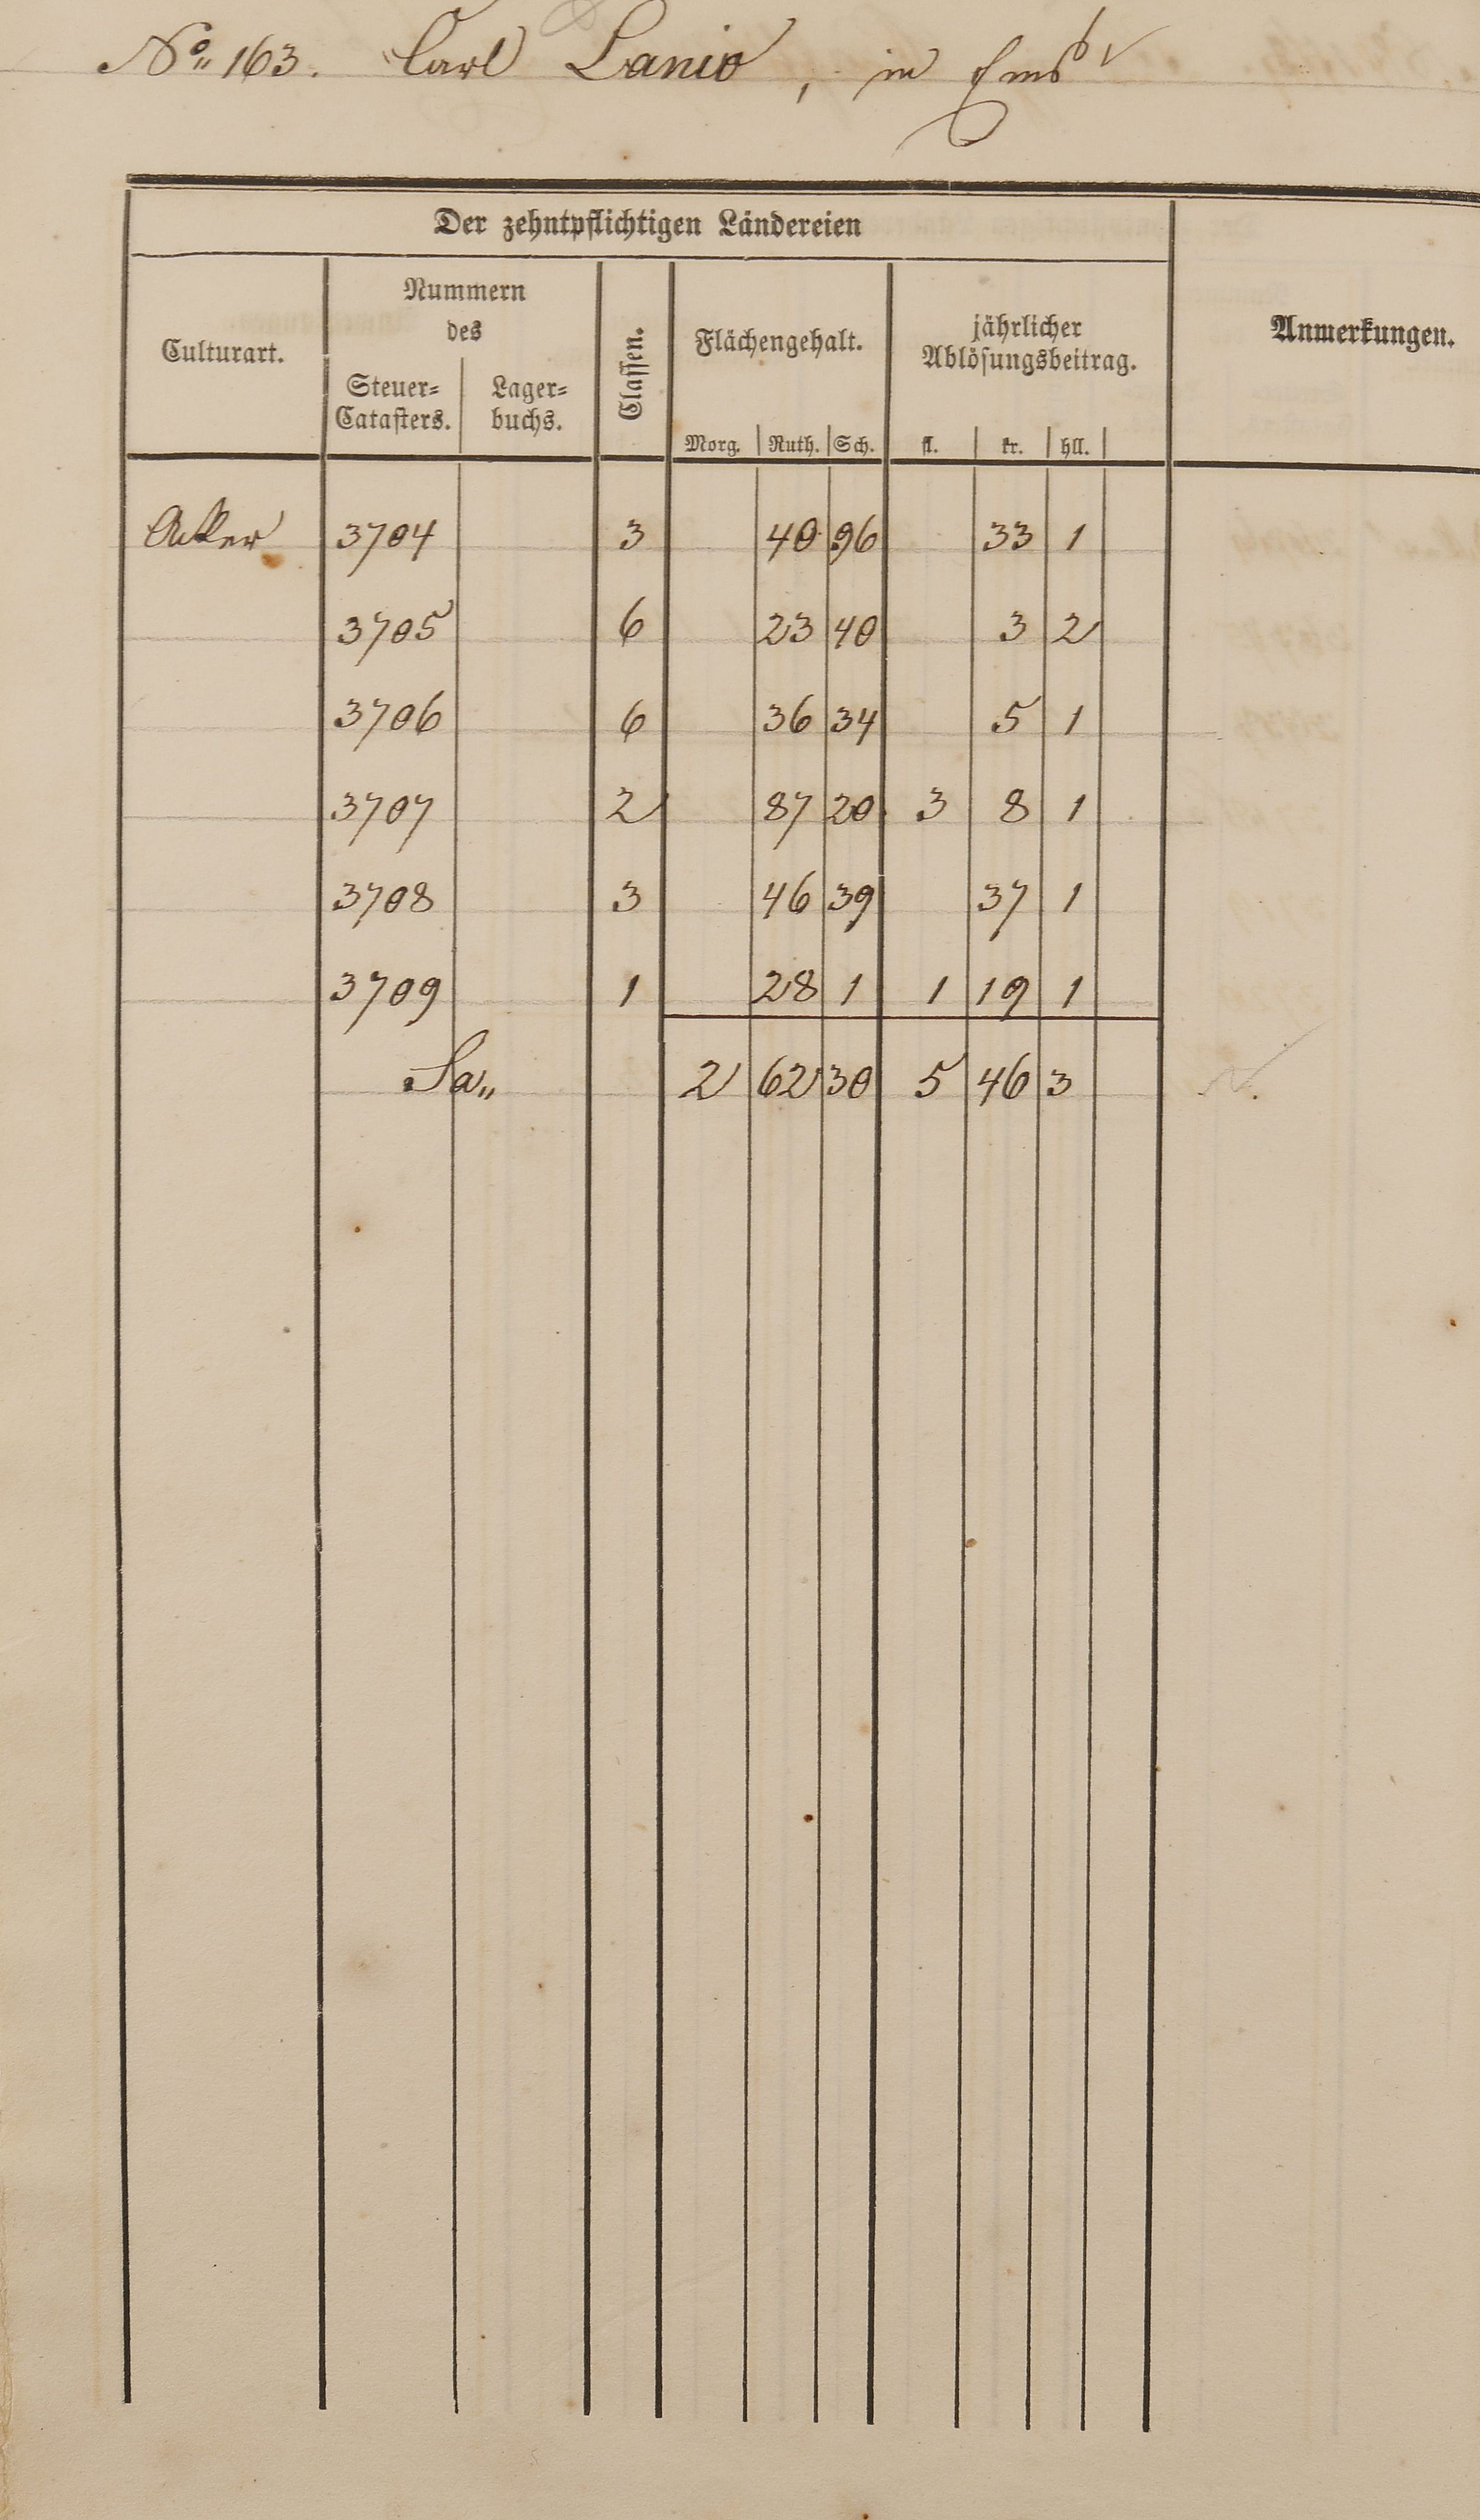 No 163. Carl Lanio, in Ems
Der zehntpflichtigen Ländereien
Culturart.
Nummern
des
Steuer=
Catasters.
Lager=
buchs.
Classen.
Flächengehalt.
Morg. Ruth. Sch.
jährlicher
Ablösungsbeitrag.
fl. kr. hll.
Anmerkungen.
Acker 3704 3 40 96 33 1
3705 6 23 40 3 2
3706 6 36 34 5 1
3707 2 87 20 3 8 1
3708 3 46 39 37 1
3709 1 28 1 1 19 1
Sa„ 2 62 30 5 46 3